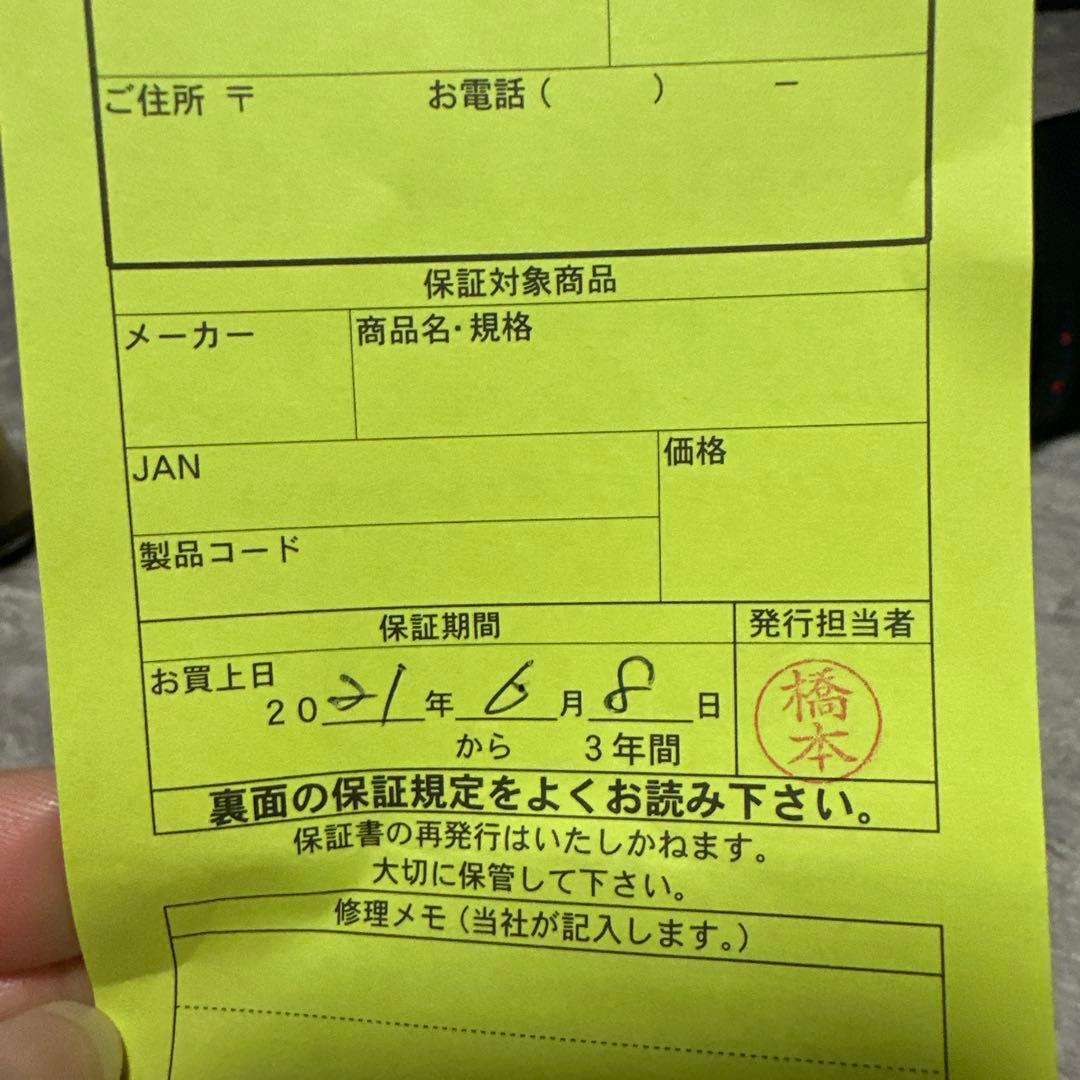 ご住所 〒 お電話（ ） ー
保証対象商品
メーカー 商品名・規格
JAN 価格
製品コード
保証期間 発行担当者
お買上日
2021年6月8日
から 3年間
橋本
裏面の保証規定をよくお読み下さい。
保証書の再発行はいたしかねます。
大切に保管して下さい。
修理メモ（当社が記入します。）